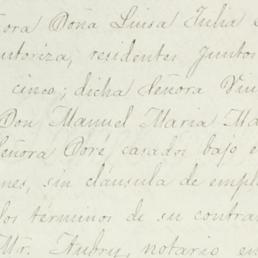 ora Doña Luisa Julia
utoriza, residentes juntos
cinco; dicha Señora Viu
Don Manuel Maria Ma
Señora Doré, casados bajo e
nes, sin cláusula de emple
los términos de su contra
Mr. Aubry, notario en